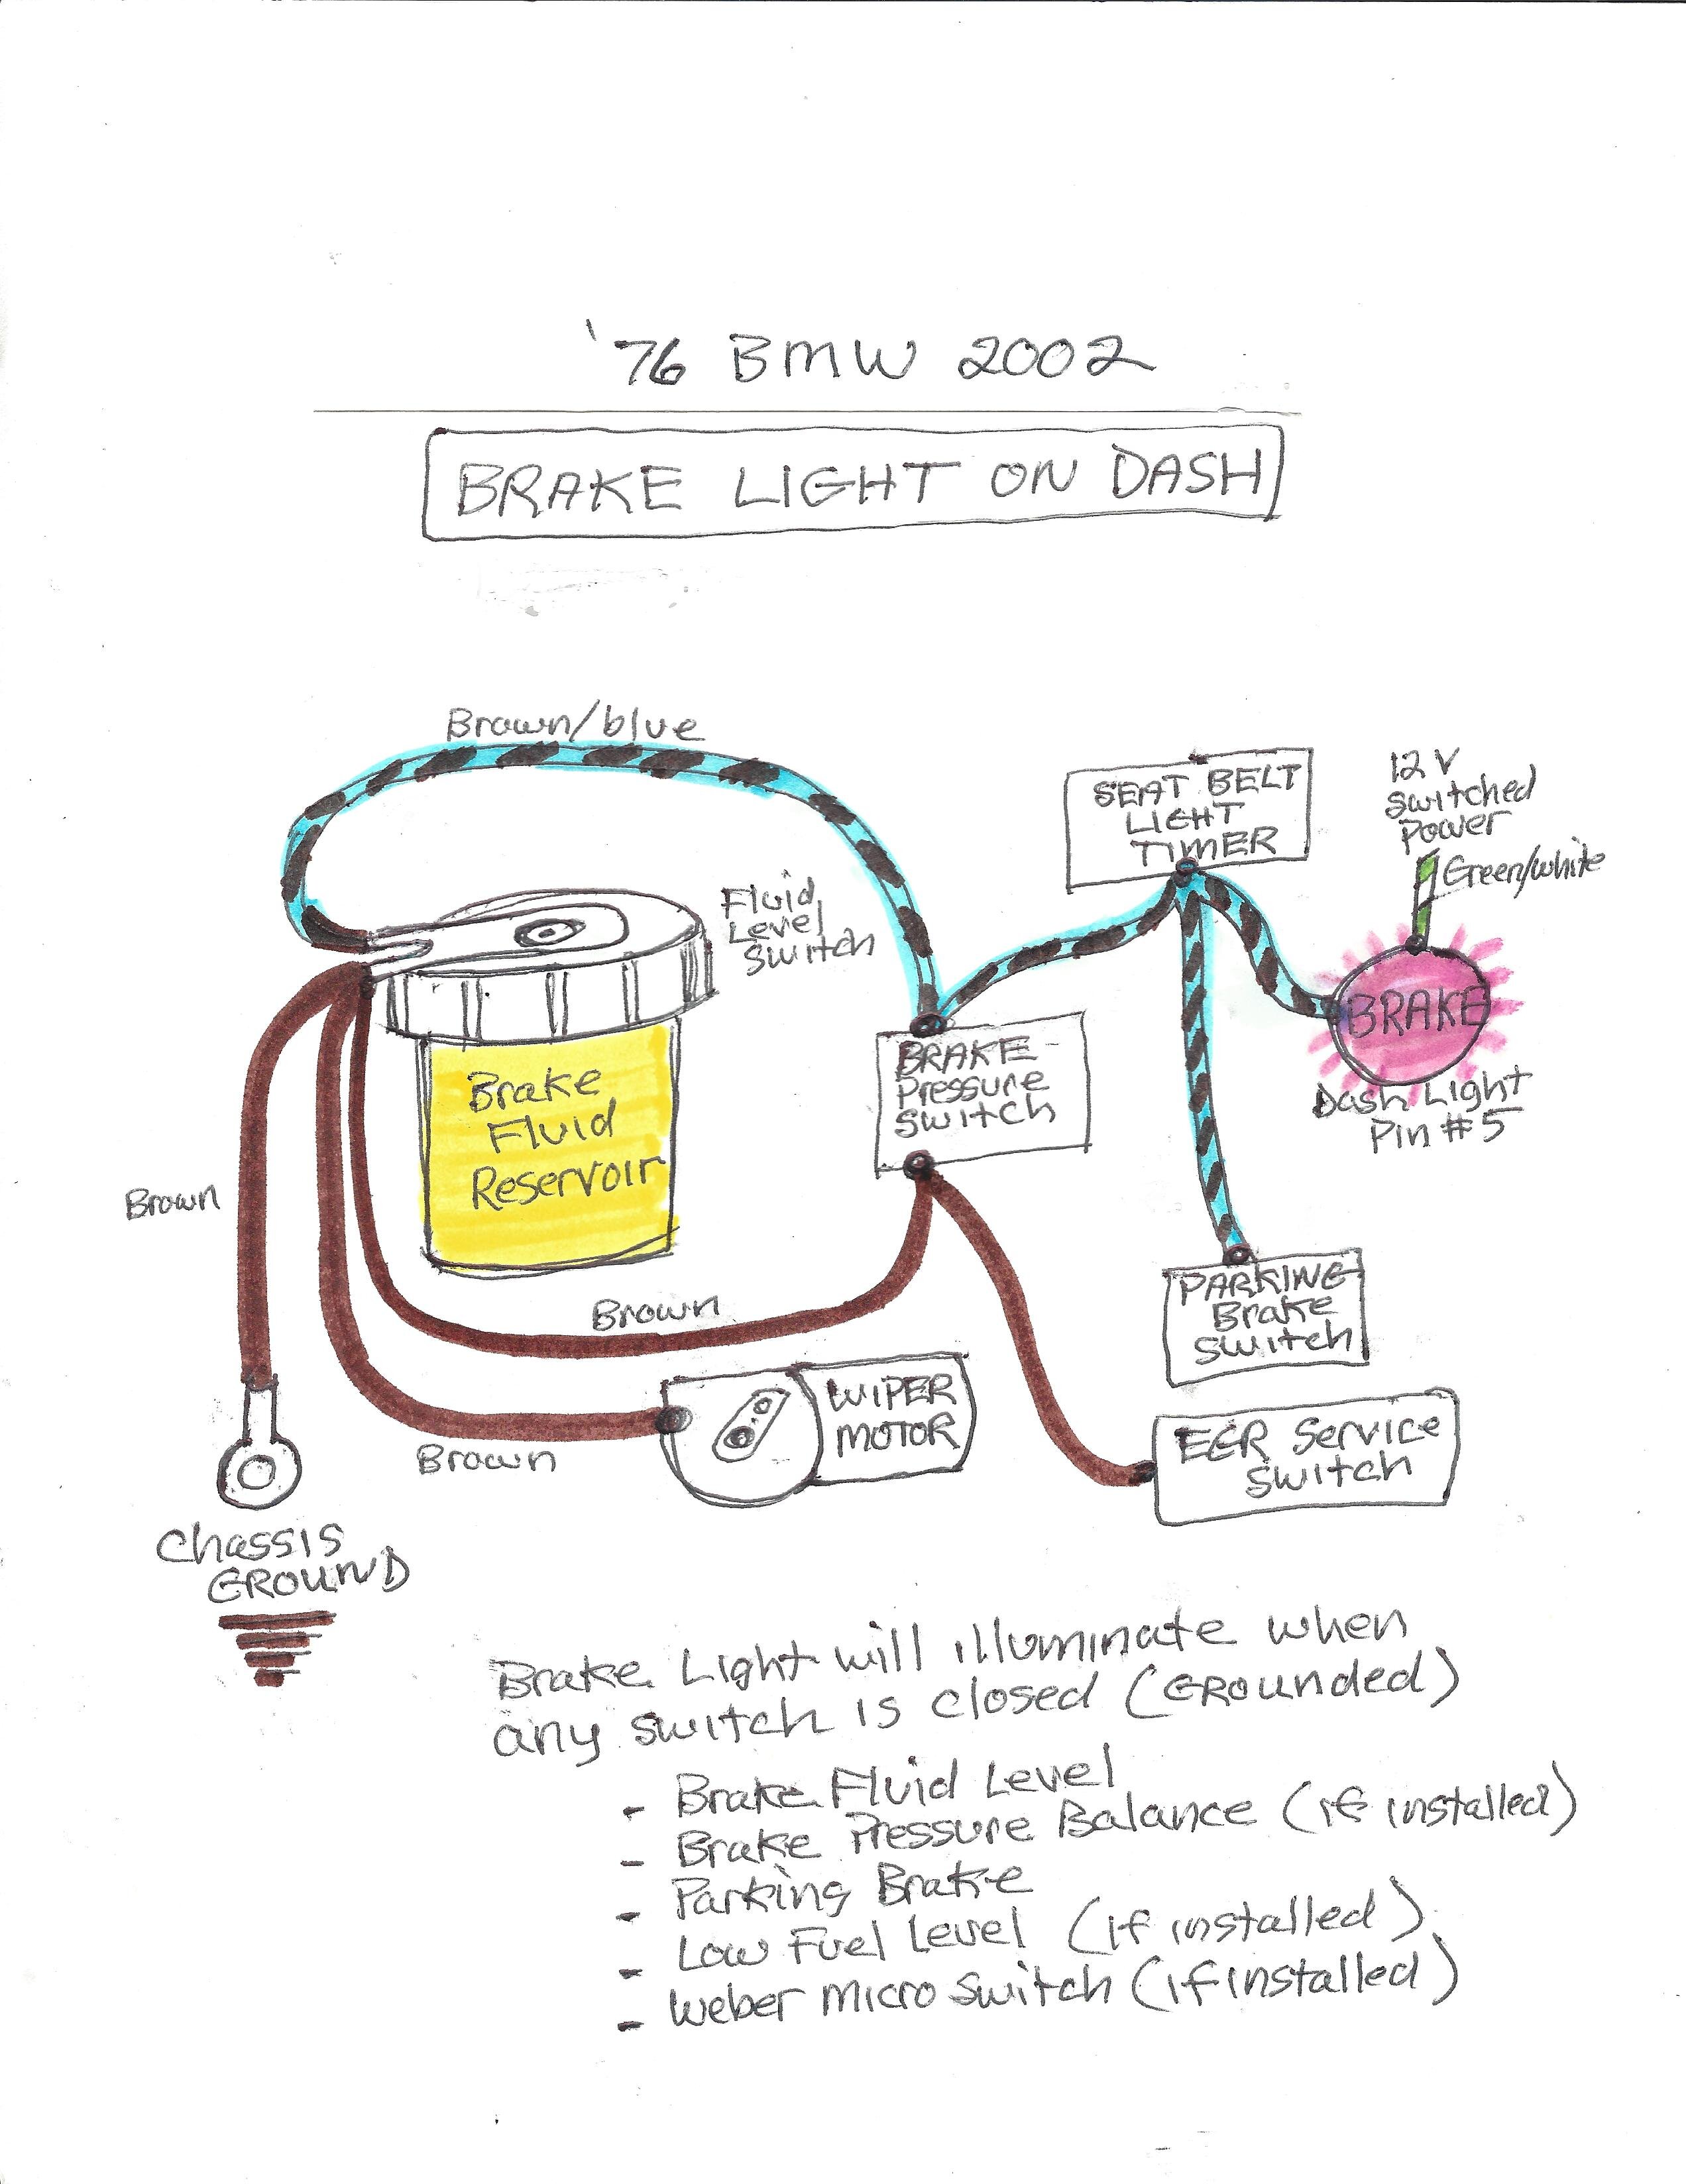 '76 BMW 2002
BRAKE LIGHT ON DASH
Brown/blue
SEAT BELT
LIGHT
TIMER
12 V
switched
Power
Green/white
Fluid
Level
Switch
BRAKE
Dash Light
Pin #5
BRAKE
Pressure
Switch
Brake
Fluid
Reservoir
Brown
PARKING
Brake
Switch
Brown
WIPER
MOTOR
Brown
EGR Service
Switch
Chassis
GROUND
Brake Light will illuminate when
any switch is closed (Grounded)
- Brake Fluid Level
- Brake Pressure Balance (if installed)
- Parking Brake
- Low Fuel Level (if installed)
- Weber Micro Switch (if installed)